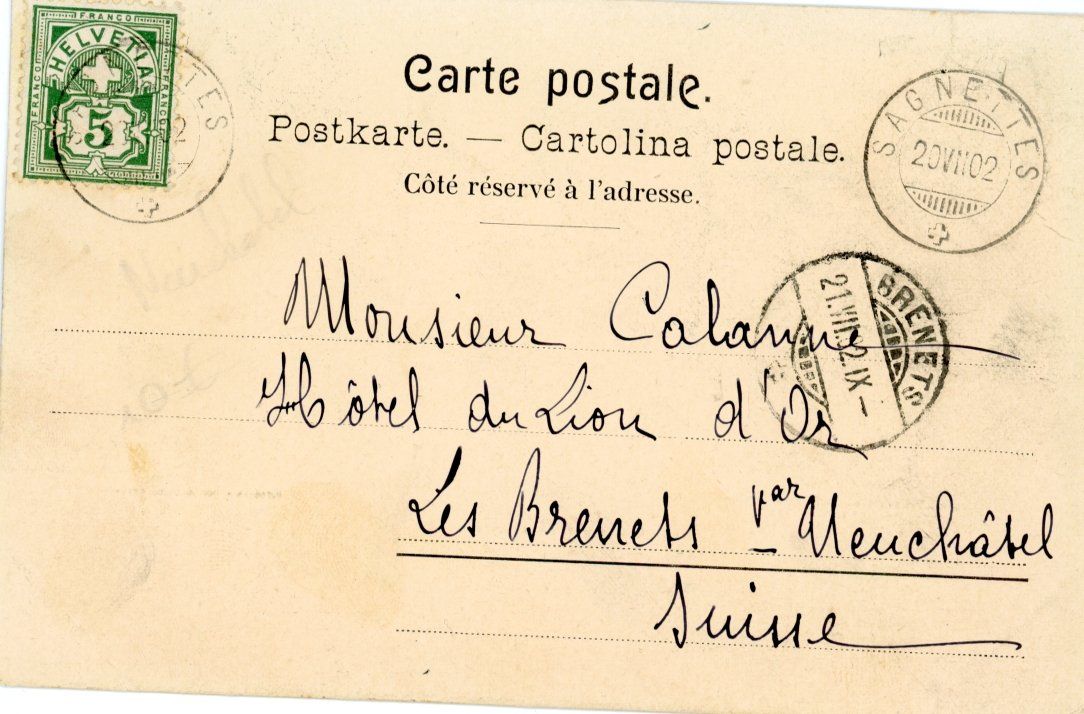 FRANCO
FRANCO
FRANCO
HELVETIA
5
Carte postale.
Postkarte. — Cartolina postale.
Côté réservé à l'adresse.
SAGNETTES
20 VII 02
BRENETS
21.VII.02.IX–
Monsieur Calanne
Hôtel du Lion d'Or
Les Brenets par Neuchâtel
Suisse